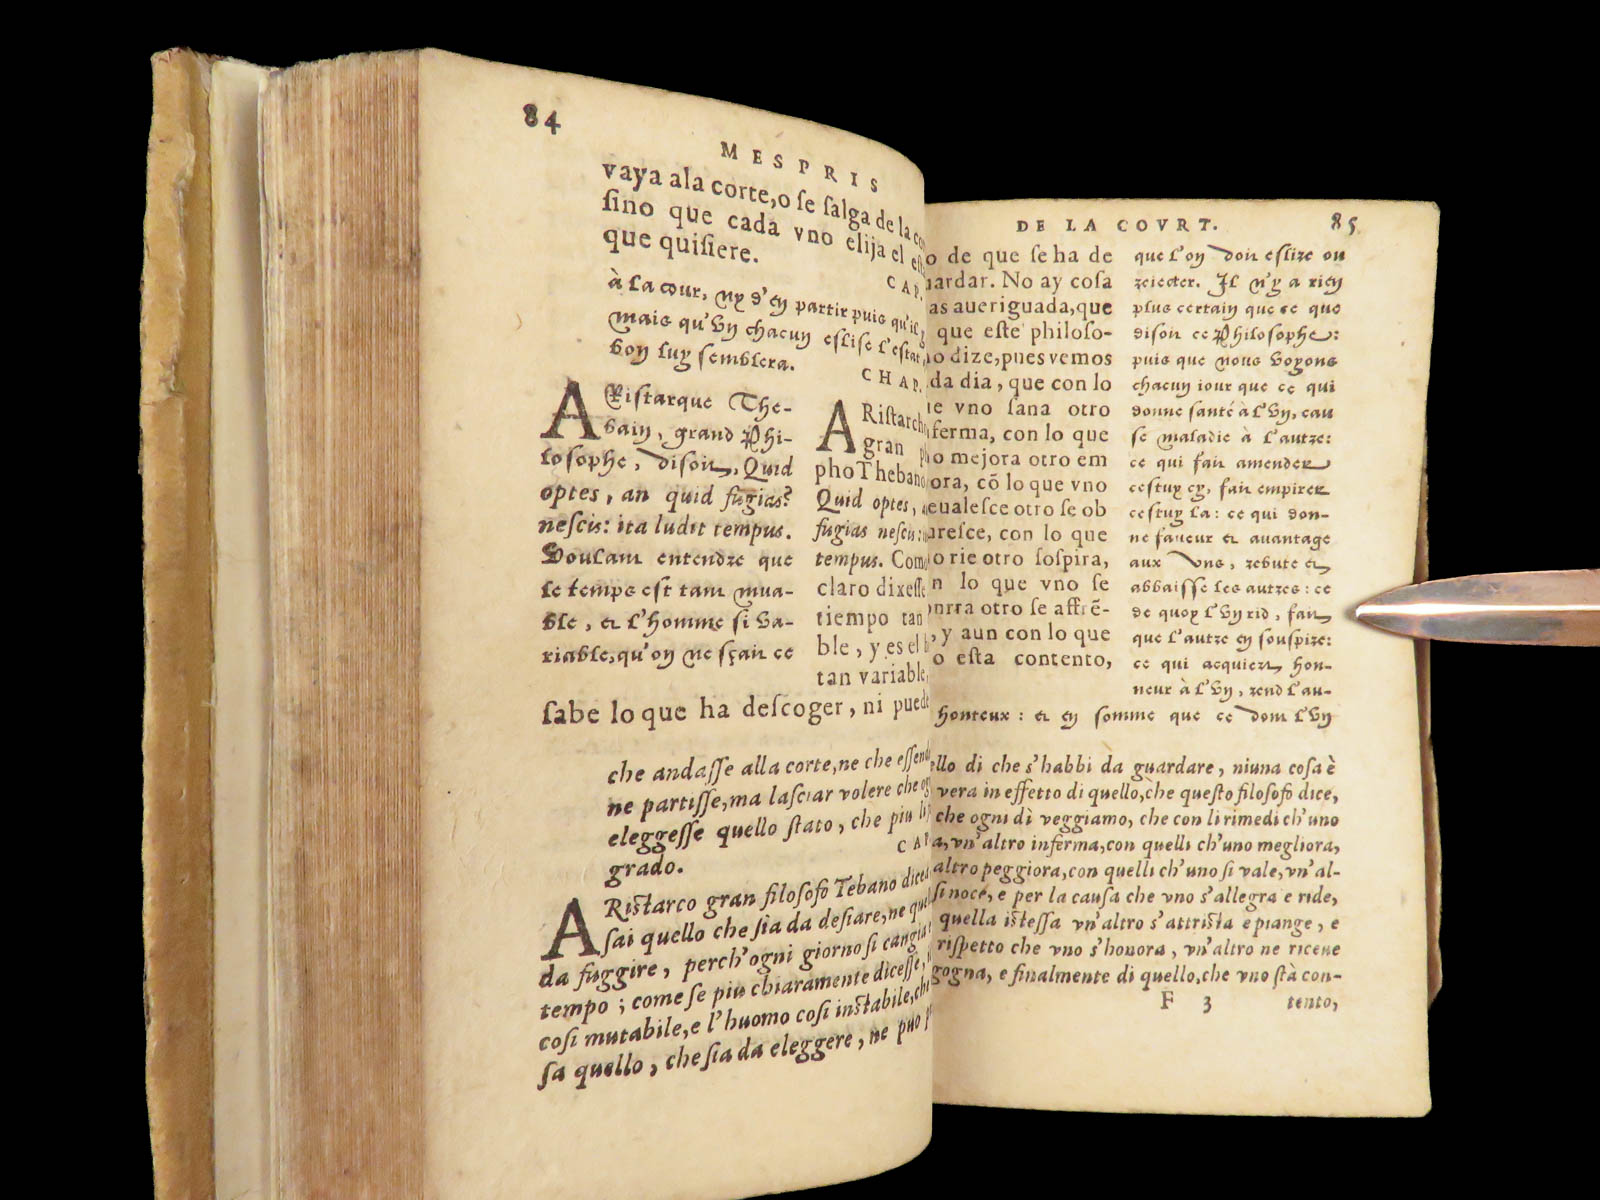 84
MESPRIS
vaya ala corte, o se salga de la
sino que cada vno elija el
que quisiere.
CAP.
à la cour, ny d'en partir puis qu'il
mais qu'vn chacun eslise l'estat
bon luy semblera.
CHAP.
ARistarque The-
bain, grand Phi-
losophe, disoit, Quid
optes, an quid fugias?
nescis: ita ludit tempus.
Voulant entendre que
le temps est tant mua-
ble, et l'homme si va-
riable, qu'on ne sçait ce
ARistarch
gran
pho Thebano
Quid optes,
fugias nescis:
tempus. Como
claro dixesse
tiempo tan
ble, y es el
tan variable,
sabe lo que ha descoger, ni puede
che andasse alla corte, ne che
ne partisse, ma lasciar volere che
eleggesse quello stato, che piu
grado.
CAP
ARistarco gran filosofo Tebano
sai quello che sia da desiare, ne
da fuggire, perch'ogni giorno si
tempo; come se piu chiaramente dicesse,
cosi mutabile, e l'huomo cosi instabile,
sa quello, che sia da eleggere, ne puo
DE LA COVRT.
85
o de que se ha de
uardar. No ay cosa
as aueriguada, que
que este philoso-
o dize, pues vemos
da dia, que con lo
ue vno sana otro
ferma, con lo que
o mejora otro em
ora, cõ lo que vno
eualesce otro se ob
uresce, con lo que
o rie otro sospira,
n lo que vno se
onrra otro se affrē-
, y aun con lo que
o esta contento,
que l'on doit eslire ou
reiecter. Il n'y a rien
plus certain que ce que
disoit ce Philosophe:
puis que nous voyons
chacun iour que ce qui
donne santé à l'vn, cau
se maladie à l'autre:
ce qui fait amender
cestuy cy, fait empirer
cestuy la: ce qui don-
ne faueur et auantage
aux vns, rebute et
abbaisse les autres: ce
de quoy l'vn rid, fait
que l'autre en souspire:
ce qui acquiert hon-
neur à l'vn, rend l'au-
honteux: et en somme que ce dont l'vn
ello di che s'habbi da guardare, niuna cosa è
vera in effetto di quello, che questo filosofo dice,
che ogni dì veggiamo, che con li rimedi ch'uno
a, vn'altro inferma, con quelli ch'uno megliora,
altro peggiora, con quelli ch'uno si vale, vn'al-
si noce, e per la causa che vno s'allegra e ride,
quella istessa vn'altro s'attrista e piange, e
rispetto che vno s'honora, vn'altro ne riceue
gogna, e finalmente di quello, che vno stà con-
F 3
tento,